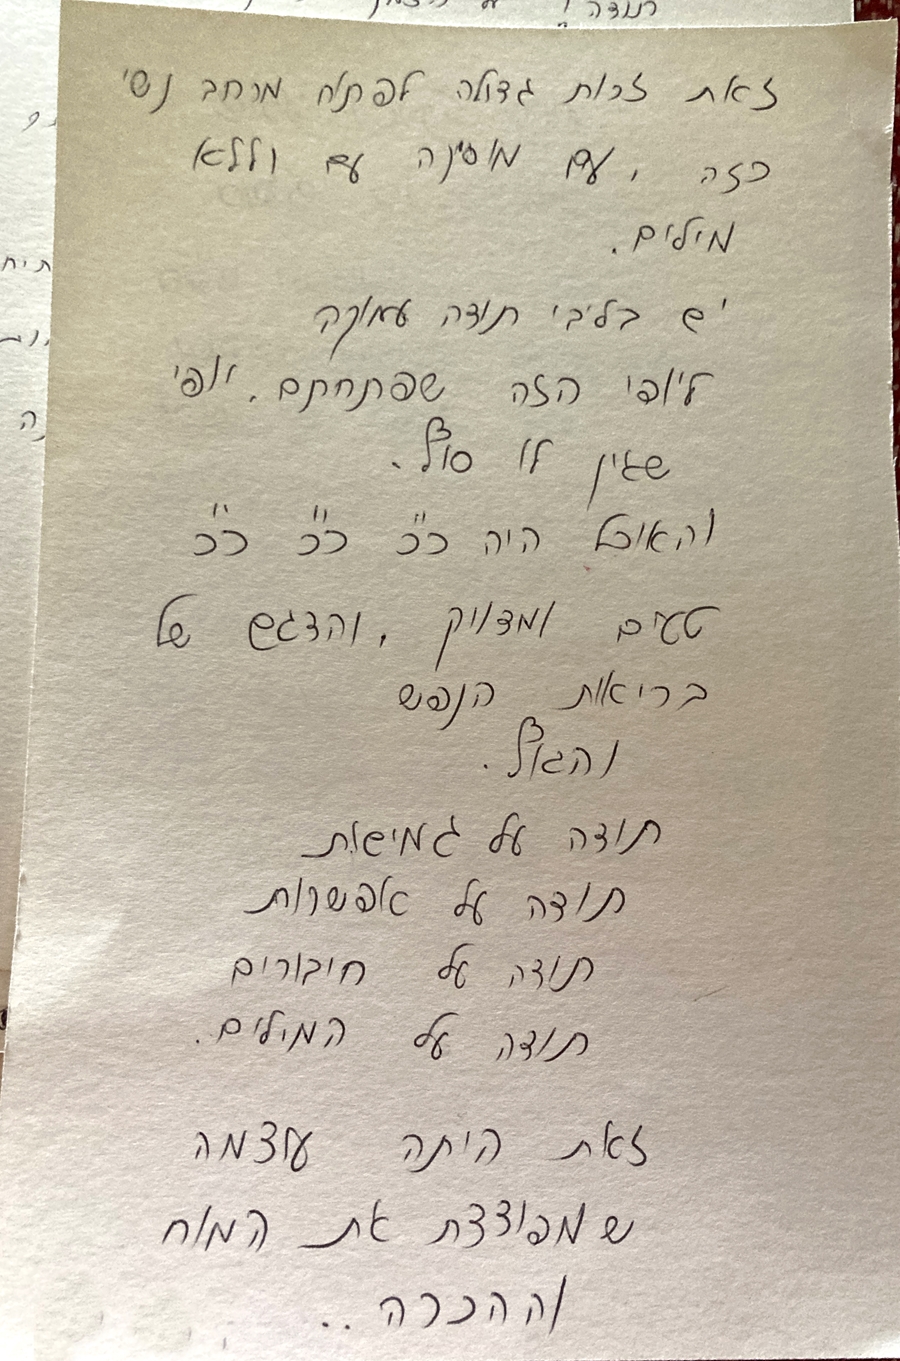 זאת זכות גדולה לפתוח מרחב נשי
כזה , עם מוסיקה עם וללא
מילים.
יש בליבי תודה עמוקה
ליופי הזה שפתחתם. יופי
שאין לו סוף.
והאוכל היה כ"כ כ"כ כ"כ
טעים ומדויק , והדגש על
בריאות הנפש
והגוף.
תודה על גמישות
תודה על אפשרות
תודה על חיבורים
תודה על המילים.
זאת היתה עוצמה
שמפוצצת את המוח
וההכרה ..